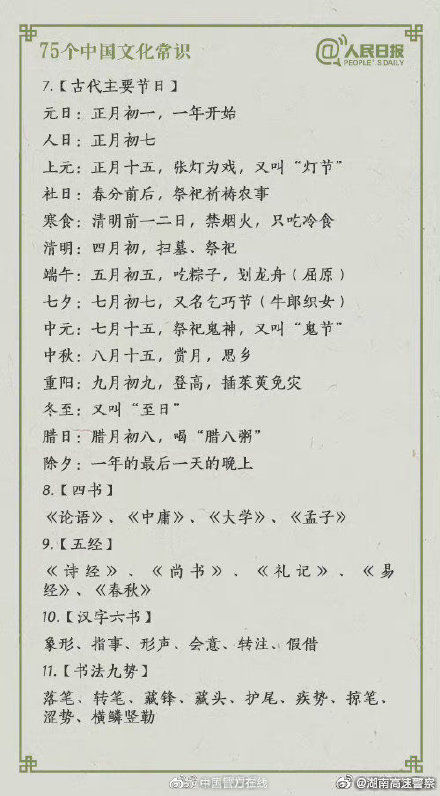 75个中国文化常识
@人民日报
PEOPLE'S DAILY
7.【古代主要节日】
元日：正月初一，一年开始
人日：正月初七
上元：正月十五，张灯为戏，又叫“灯节”
社日：春分前后，祭祀祈祷农事
寒食：清明前一二日，禁烟火，只吃冷食
清明：四月初，扫墓、祭祀
端午：五月初五，吃粽子，划龙舟（屈原）
七夕：七月初七，又名乞巧节（牛郎织女）
中元：七月十五，祭祀鬼神，又叫“鬼节”
中秋：八月十五，赏月，思乡
重阳：九月初九，登高，插茱萸免灾
冬至：又叫“至日”
腊日：腊月初八，喝“腊八粥”
除夕：一年的最后一天的晚上
8.【四书】
《论语》、《中庸》、《大学》、《孟子》
9.【五经】
《诗经》、《尚书》、《礼记》、《易
经》、《春秋》
10.【汉字六书】
象形、指事、形声、会意、转注、假借
11.【书法九势】
落笔、转笔、藏锋、藏头、护尾、疾势、掠笔、
涩势、横鳞竖勒
@中国官方在线
@湖南高速警察